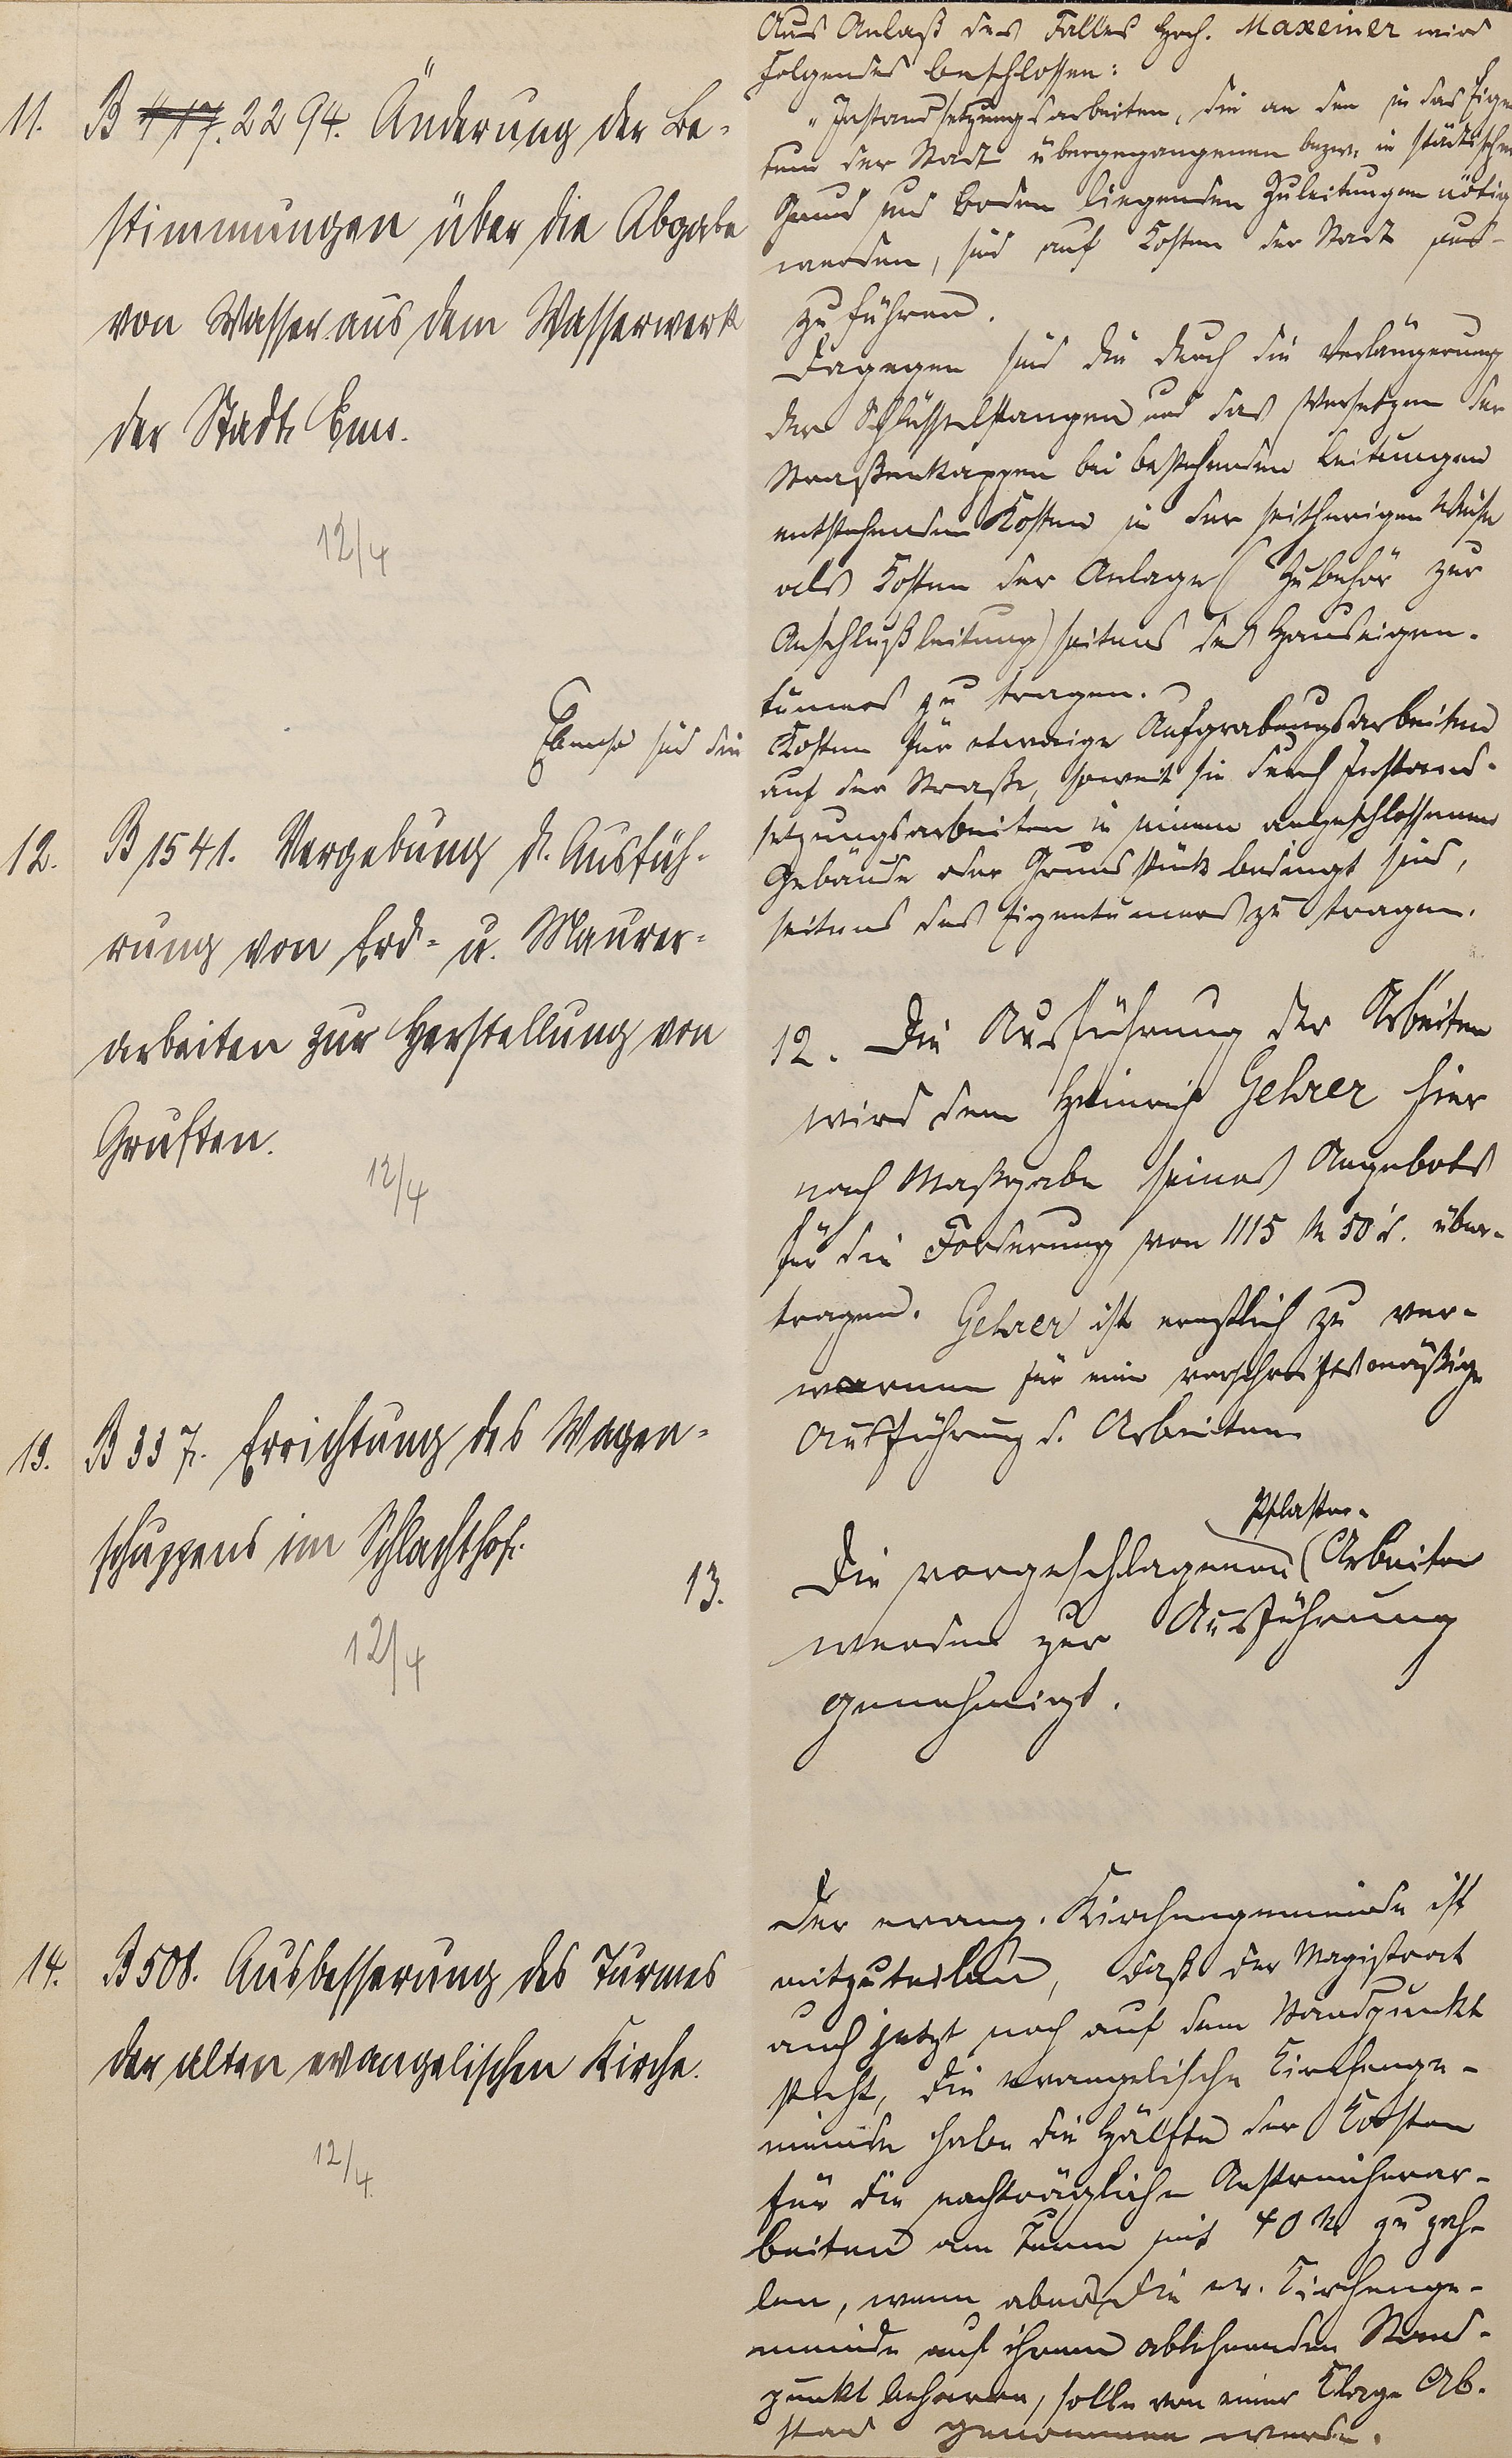 11. B 417. 2294. Änderung der Be-
stimmungen über die Abgabe
von Wasser aus dem Wasserwerk
der Stadt Ems.
12/4
Aus Anlaß des Falles Hch. Maxeiner wird
Folgendes beschlossen:
"Instandsetzungsarbeiten, die an den in das Eigen
tum der Stadt übergegangenen bezw. in städtischem
Grund und Boden liegenden Zuleitungen nötig
werden, sind auf Kosten der Stadt aus-
zuführen.
Dagegen sind die durch die Verlängerung
der Schlüsselstangen und das Versetzen der
Straßenkappen bei bestehenden Leitungen
entstehenden Kosten in der seitherigen Weise
als Kosten der Anlage (Zubehör zur
Anschlußleitung) seitens des Hauseigen-
tümers zu tragen.
Ebenso sind die Kosten für etwaige Aufgrabungsarbeiten
auf der Straße, soweit sie durch Instand-
setzungsarbeiten in einem angeschlossenen
Gebäude oder Grundstück bedingt sind,
seitens des Eigentümers zu tragen.
12. B 1541. Vergebung d. Ausfüh-
rung von Erd- u. Maurer-
arbeiten zur Herstellung von
Gruften.
12/4
12. Die Ausführung der Arbeiten
wird dem Heinrich Gehrer hier
nach Maßgabe seines Angebots
für die Forderung von 1115 M 50 d. über-
tragen. Gehrer ist ernstlich zu ver-
warnen für eine vorschriftsmäßige
Ausführung d. Arbeiten
13. B 337. Errichtung des Wagen-
schuppens im Schlachthof.
12/4
13. Die vorgeschlagenen Pflaster-
Arbeiten
werden zur Ausführung
genehmigt.
14. B 508. Ausbesserung des Turmes
der alten evangelischen Kirche.
12/4
Der evang. Kirchengemeinde ist
mitzuteilen, daß der Magistrat
auch jetzt noch auf dem Standpunkt
steht, die evangelische Kirchenge-
meinde habe die Hälfte der Kosten
für die nachträglichen Anstreicherar-
beiten am Turm mit 40 M zu zah-
len, wenn aber die ev. Kirchenge-
meinde auf ihrem ablehnenden Stand-
punkt beharre, solle von einer Klage Ab-
stand genommen werden.